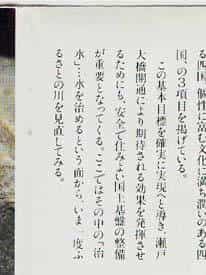 る四国 個性に富む文化に満ち潤いのある四
国、の3項目を掲げている。
この基本目標を確実に実現へと導き、瀬戸
大橋開通により期待される効果を発揮させ
るためにも、安全で住みよい国土基盤の整備
が重要となってくる。ここではその中の「治
水」…水を治めるという面から、いま一度ふ
るさとの川を見直してみる。